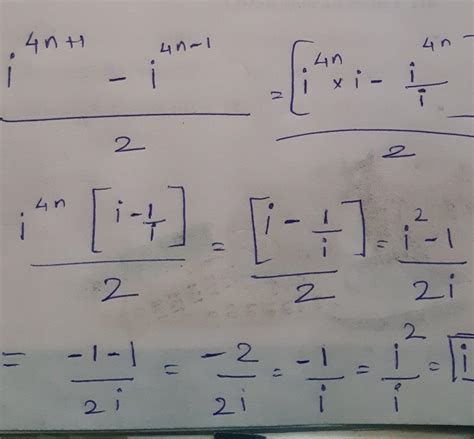 (i^(4n+1) - i^(4n-1))/2 = [i^(4n) × i - i^(4n)/i
(i^(4n) [i - 1/i])/2 = [i - 1/i]/2 = (i^2 - 1)/2i
= (-1-1)/2i = -2/2i = -1/i = i^2/i = i